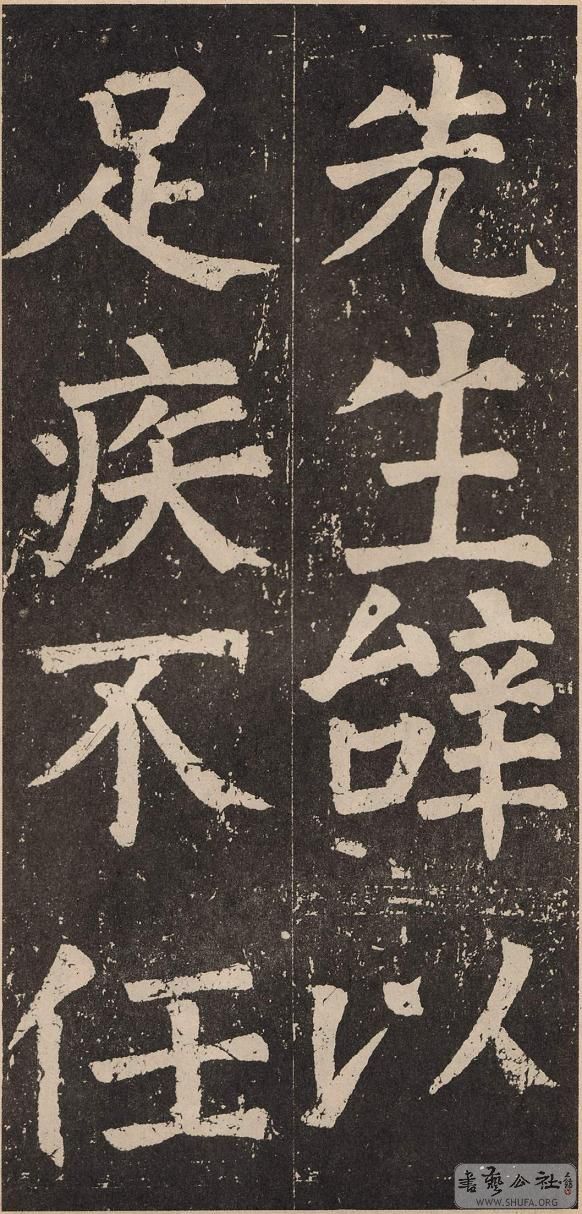 先生辝以
足疾不任
書藝公社
WWW.SHUFA.ORG